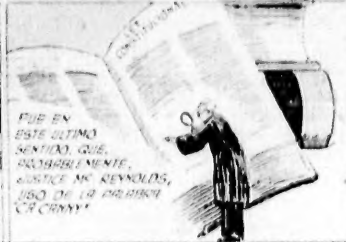 LEY
CONSTITUCIONAL
FUE EN
ESTE ULTIMO
SENTIDO, QUE,
PROBABLEMENTE,
JUSTICE MC REYNOLDS,
USO DE LA PALABRA
"CANNY"